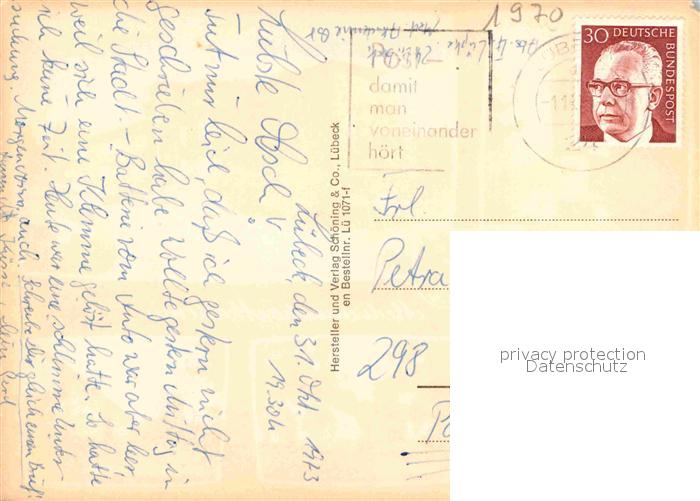 1970
30 DEUTSCHE
BUNDESPOST
Post -
damit
man
voneinander
hört
Hersteller und Verlag Schöning & Co., Lübeck
en Bestellnr. Lü 1071-f
Lübeck, den 31. Okt. 1973
19.30h
tut mir leid, daß ich gestern nicht
geschrieben habe. Wollte gestern Mittag in
die Stadt. - Batterie vom Auto war aber leer
weil sich eine Klemme gelöst hatte. So hatte
ich keine Zeit. Heute war eine schlimme Unter-
suchung. Morgen auch. Schreibe dir gleich einen Brief!
Dein
Frl
Petra
298
privacy protection
Datenschutz